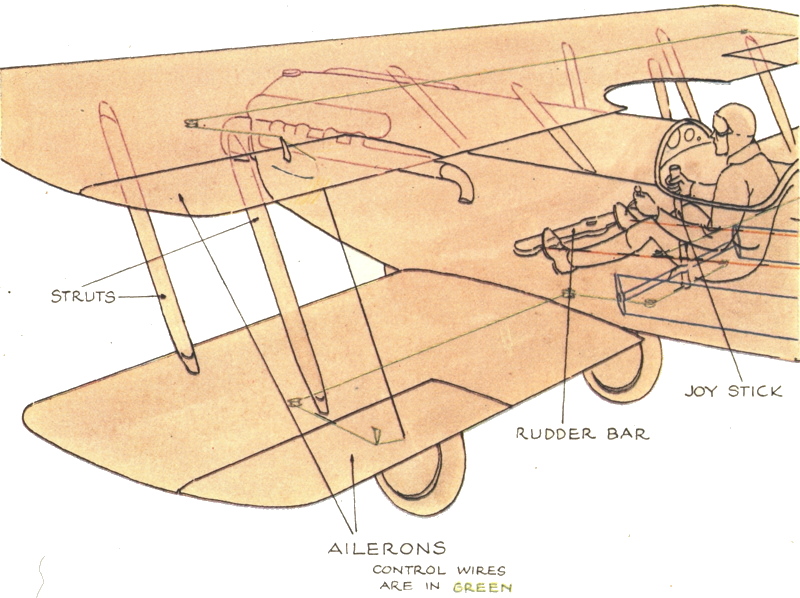 STRUTS
JOY STICK
RUDDER BAR
AILERONS
CONTROL WIRES
ARE IN GREEN